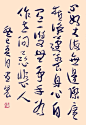 心如大海無邊際廣
植淨蓮養身心自
有一雙無事手為
作世間慈悲人